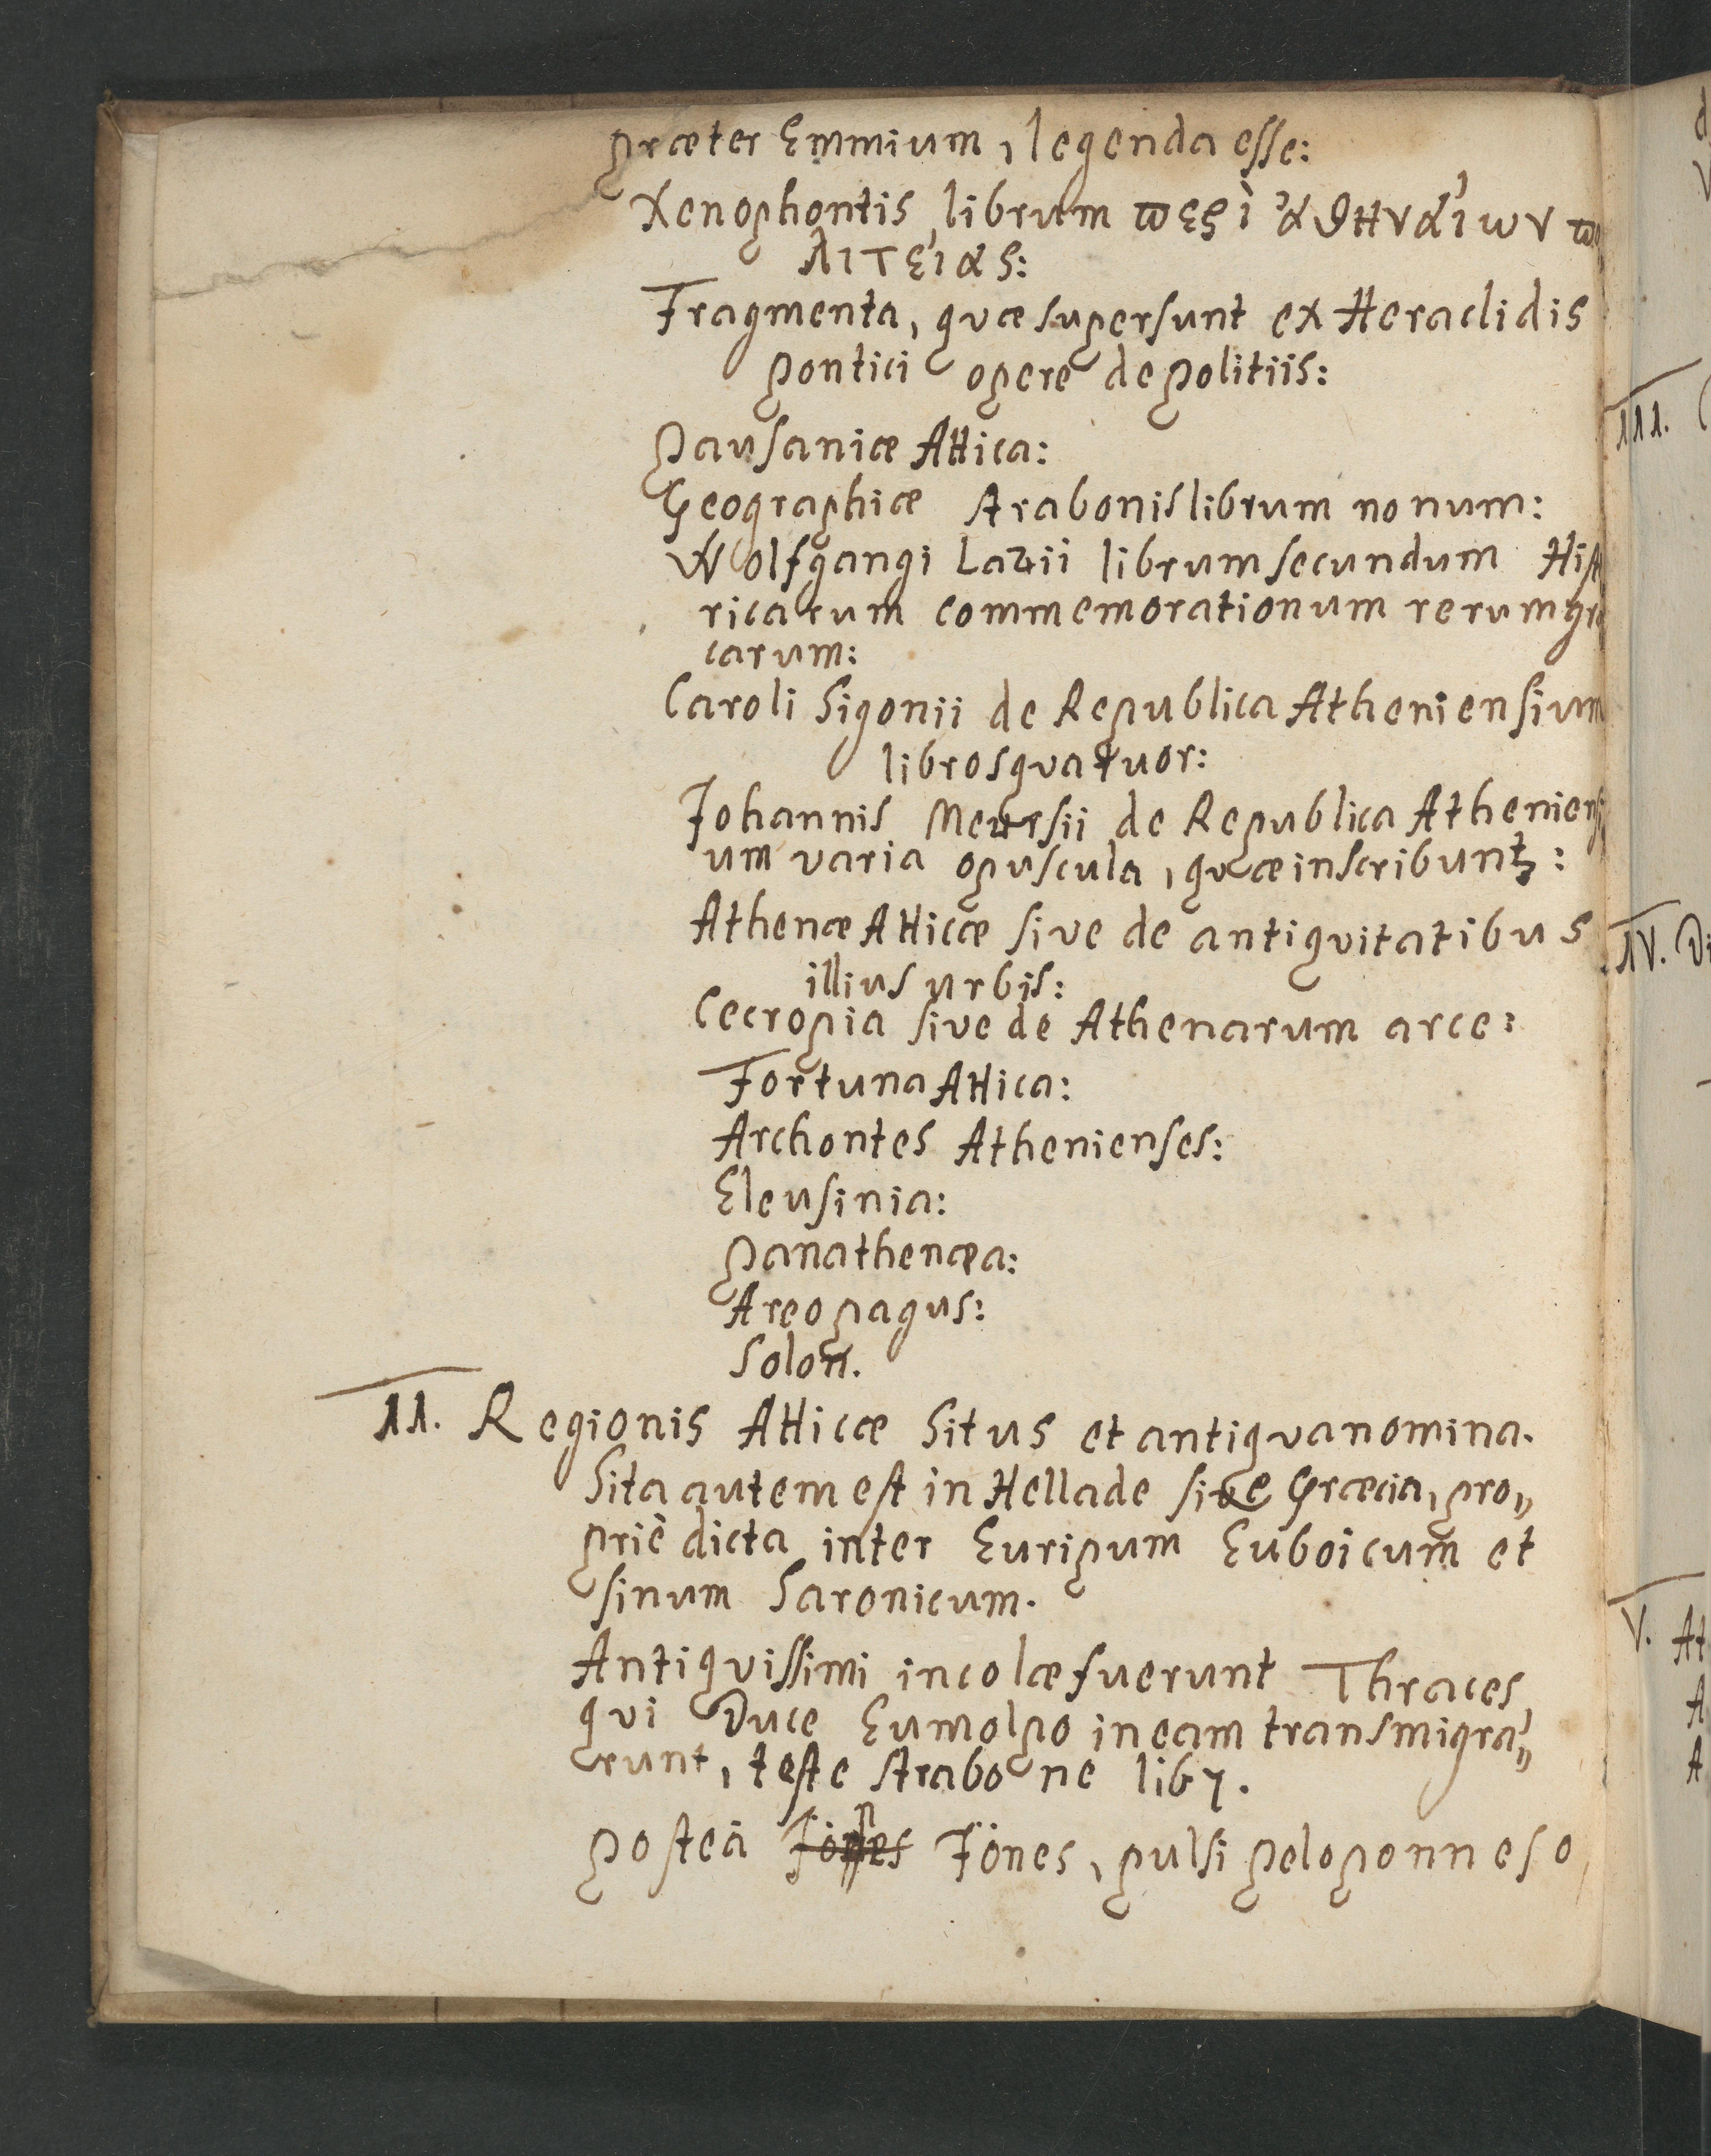 præter Emmium, legenda esse:
Xenophontis librum ϖερὶ ἀθηναίων ϖο
λιτείας:
Fragmenta, quæ supersunt ex Heraclidis
pontici opere de politiis:
Pausaniæ Attica:
Geographiæ Strabonis librum nonum:
Wolfgangi Lazii librum secundum Histo
ricarum commemorationum rerum græ
carum:
Caroli Sigonii de Republica Atheniensium
libros quatuor:
Johannis Meursii de Republica Atheniensi
um varia opuscula, quæ inscribuntꝫ:
Athenæ Atticæ sive de antiquitatibus
illius urbis:
Cecropia sive de Athenarum arce:
Fortuna Attica:
Archontes Athenienses:
Eleusinia:
Panathenæa:
Areopagus:
Solon.
II. Regionis Atticæ Situs et antiqua nomina.
Sita autem est in Hellade sive Græcia, pro„
priè dicta inter Euripum Euboicum et
sinum Saronicum.
Antiquissimi incolæ fuerunt Thraces
qui Duce Eumolpo in eam transmigra„
runt, teste Strabone lib 7.
posteà Jönes, pulsi peloponneso
III.
IV. Di
V. At
A
A